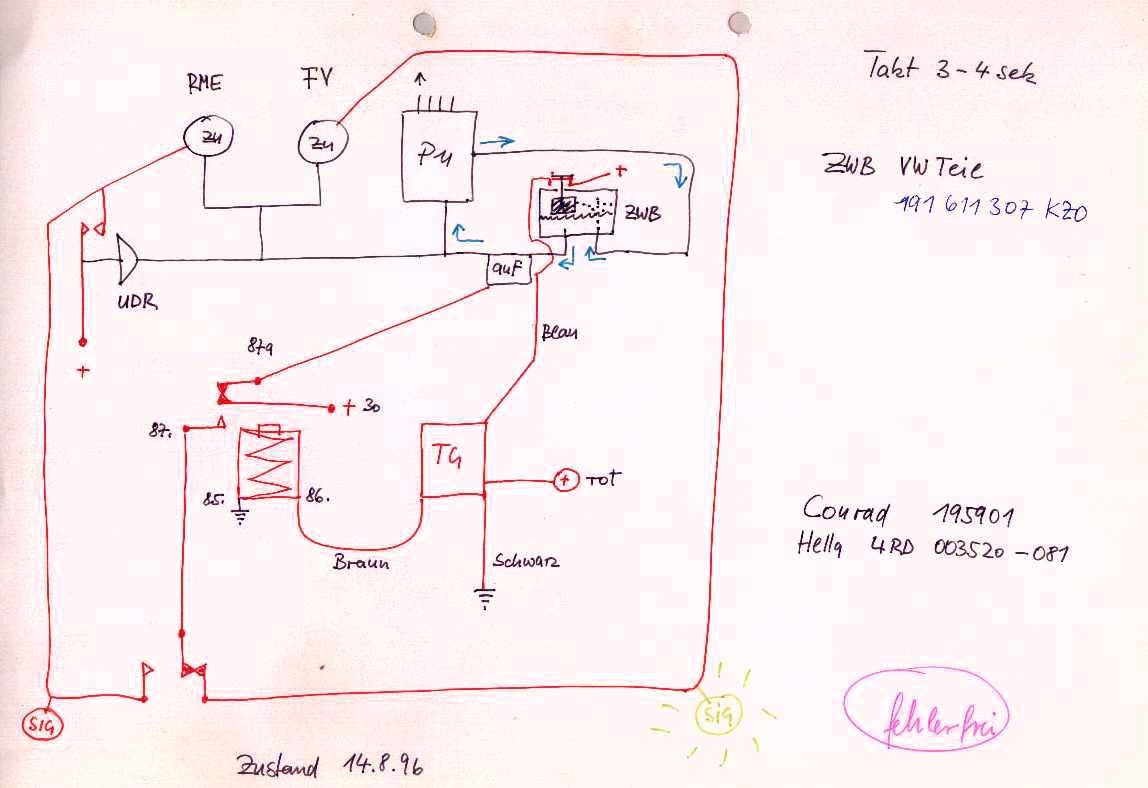 Takt 3-4 sek
RME
FV
zu
zu
Pu
ZWB VW Teile
191 611 307 KZO
+
ZWB
auf
UDR
Blau
87a
+
+ 30
87.
TG
85.
86.
+ rot
Conrad 195901
Hella 4RD 003520-081
Braun
Schwarz
SIG
SIG
fehlerfrei
Zustand 14.8.96